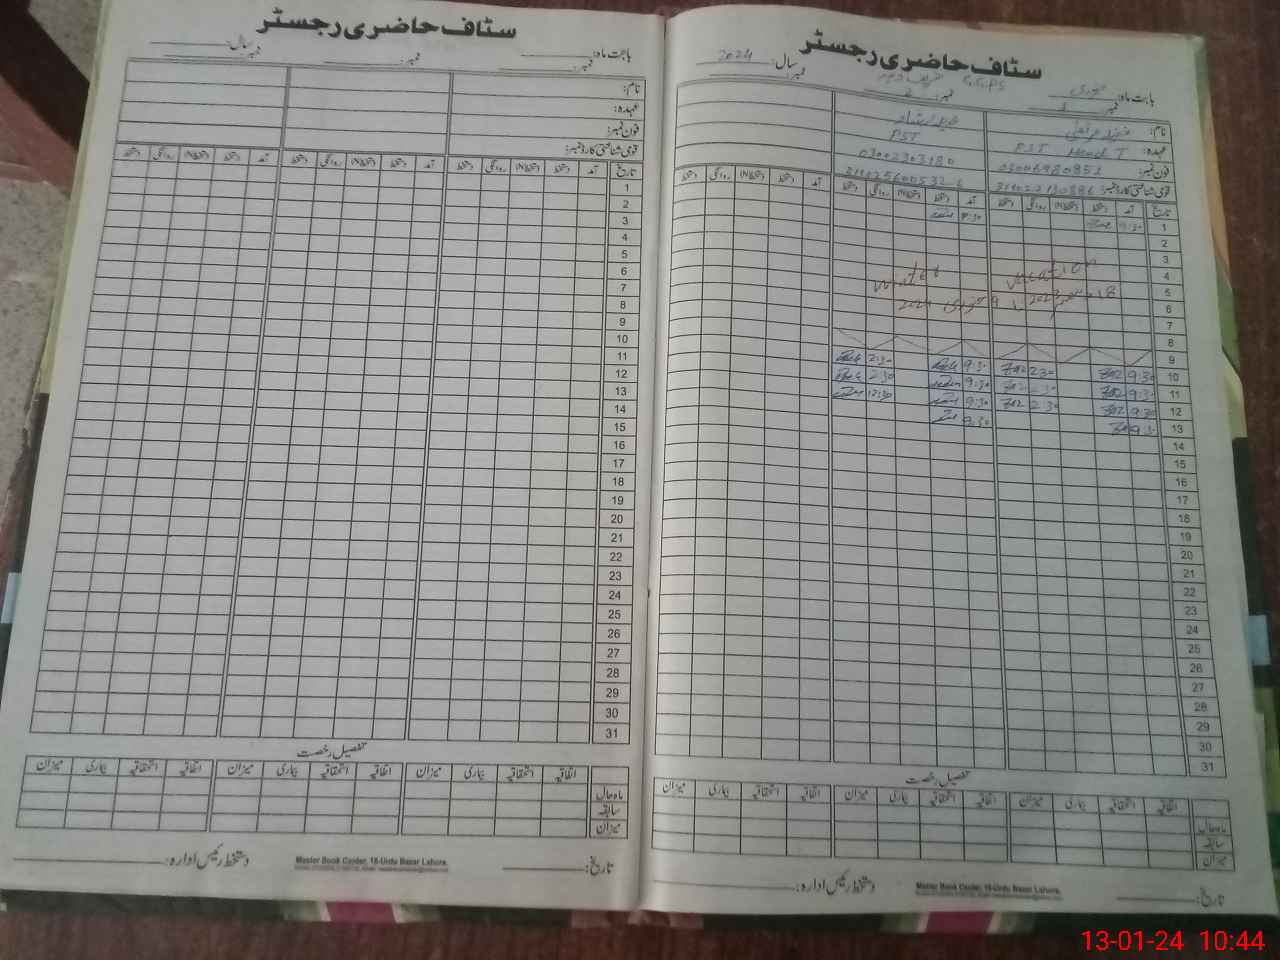 سٹاف حاضری رجسٹر
بابت ماہ: جنوری سال: 2024
نمبر: 1 نمبر: 2 نمبر:
نام:
عہدہ: PST Head T PST
فون نمبر: 03006980852 03002303180
قومی شناختی کارڈ نمبر:
تاریخ آمد دستخط دستخط(N) روانگی دستخط آمد دستخط دستخط(N) روانگی دستخط آمد دستخط دستخط(N) روانگی دستخط
1 9:30 9:30
2
3
4
5
6
7
8
9
10 9:30 2:30 9:30 2:30
11 9:30 2:30 9:30 2:30
12 9:30 2:30 9:30 12:30
13 9:30 9:30
14
15
16
17
18
19
20
21
22
23
24
25
26
27
28
29
30
31
winter vacation
تفصیل رخصت
اتفاقیہ استحقاقیہ بیماری میزان اتفاقیہ استحقاقیہ بیماری میزان اتفاقیہ استحقاقیہ بیماری میزان
ماہ حال
سابقہ
میزان
تاریخ: Master Book Center, 16-Urdu Bazar Lahore. دستخط رئیس ادارہ:
سٹاف حاضری رجسٹر
بابت ماہ: سال:
نمبر: نمبر: نمبر:
نام:
عہدہ:
فون نمبر:
قومی شناختی کارڈ نمبر:
تاریخ آمد دستخط دستخط(N) روانگی دستخط آمد دستخط دستخط(N) روانگی دستخط آمد دستخط دستخط(N) روانگی دستخط
1
2
3
4
5
6
7
8
9
10
11
12
13
14
15
16
17
18
19
20
21
22
23
24
25
26
27
28
29
30
31
تفصیل رخصت
اتفاقیہ استحقاقیہ بیماری میزان اتفاقیہ استحقاقیہ بیماری میزان اتفاقیہ استحقاقیہ بیماری میزان
ماہ حال
سابقہ
میزان
تاریخ: Master Book Center, 16-Urdu Bazar Lahore. دستخط رئیس ادارہ:
13-01-24 10:44